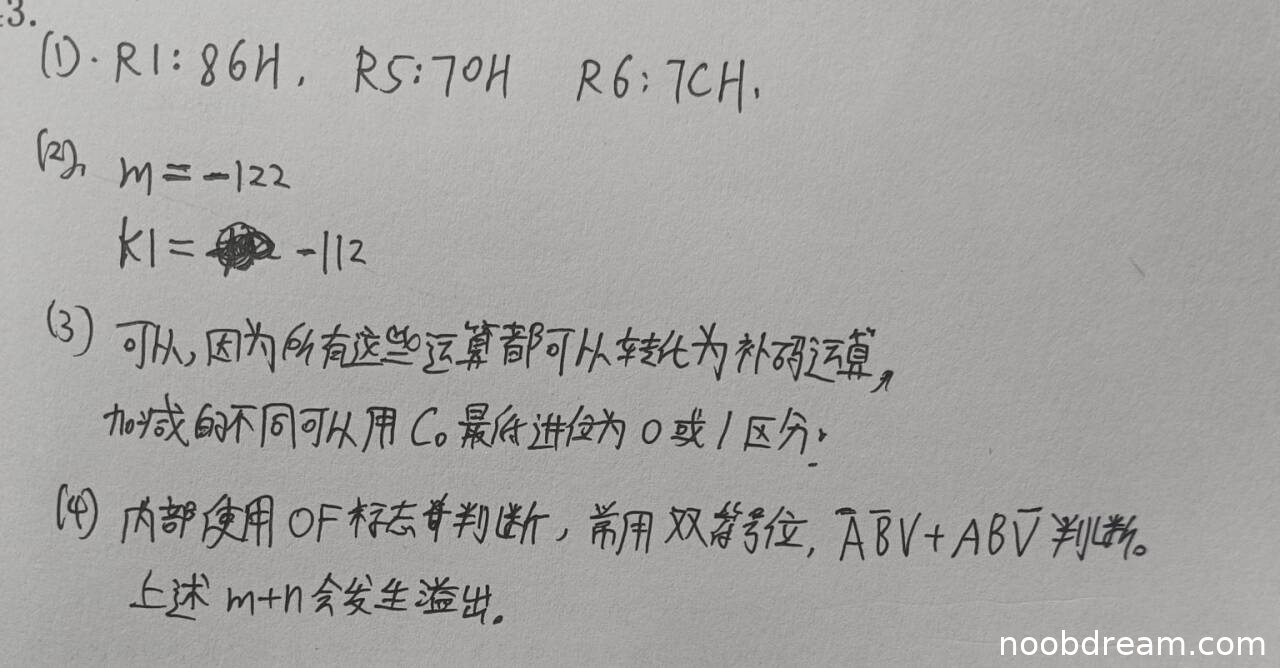 3.
(1). R1: 86H, R5: 70H R6: 7CH.
(2), m = -122
K1 = -112
(3) 可以,因为所有这些运算都可以转化为补码运算,
加减的不同可以用 C₀ 最低进位为 0 或 1 区分.
(4) 内部使用 OF 标志判断, 常用双符号位, A̅ B̅ V + A B V̅ 判断。
上述 m+n 会发生溢出。
noobdream.com